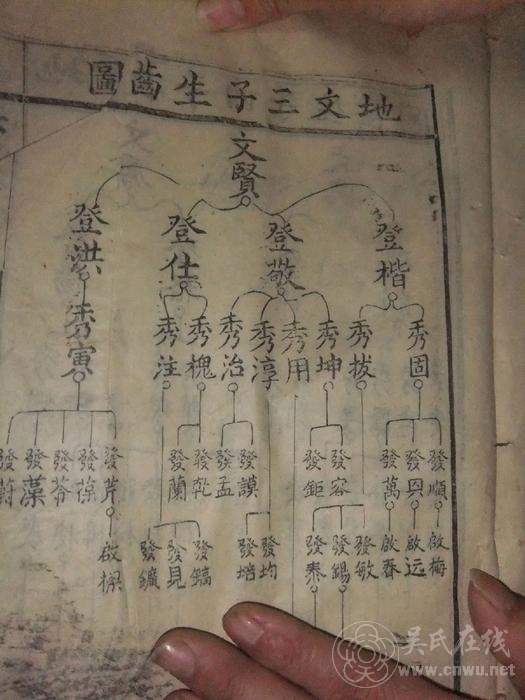 地文三子生齒圖
文賢
登楷 登敬 登仕 登洪
秀固 秀拔 秀坤 秀用 秀淳 秀治 秀槐 秀注 秀寅
發順 發貝 發萬 發容 發鉅 發謨 發孟 發乾 發蘭 發芹 發葆 發芬 發藻 發蔚
啟梅 啟远 啟春 發敏 發錫 發泰 發均 發培 發鎬 發見 發鑛
吴氏在线
www.cnwu.net